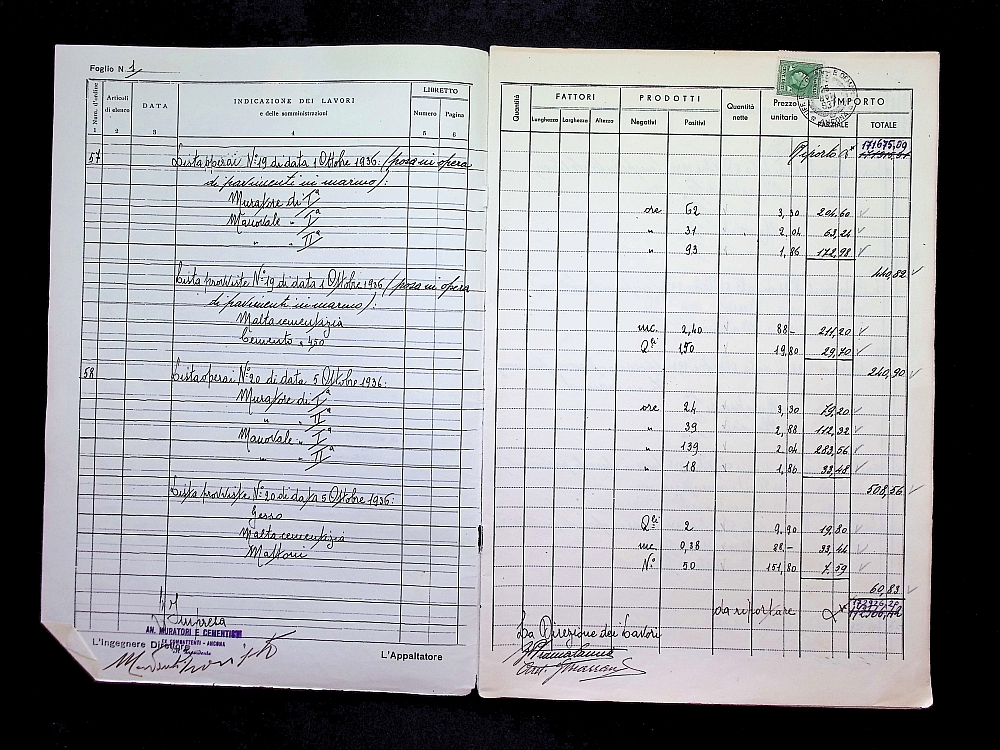 Foglio N. 1
Num. d'ordine
Articoli di elenco
DATA
INDICAZIONE DEI LAVORI
e delle somministrazioni
LIBRETTO
Numero Pagina
1 2 3 4 5 6
57 Lista operai N° 19 di data 1 Ottobre 1936 (posa in opera
di pavimenti in marmo):
Muratore di Iª
Manovale " Iª
" " IIª
Lista provviste N° 19 di data 1 Ottobre 1936 (posa in opera
di pavimenti in marmo):
Malta cementizia
Cemento a 450
58 Lista operai N° 20 di data 5 Ottobre 1936:
Muratore di Iª
" " IIª
Manovale " Iª
" " IIª
Lista provviste N° 20 di data 5 Ottobre 1936:
Gesso
Malta cementizia
Mattoni
L'Impresa
AN. MURATORI E CEMENTISTI
EX COMBATTENTI - ANCONA
Il Presidente
L'Ingegnere Direttore
L'Appaltatore
Quantità
FATTORI
Lunghezza Larghezza Altezza
PRODOTTI
Negativi Positivi
Quantità nette
Prezzo unitario
IMPORTO
PARZIALE TOTALE
Riporto L. 171675,09
ore 62 3,30 204,60
" 31 2,04 63,24
" 93 1,86 172,98
440,82
mc. 2,40 88 – 211,20
Q.li 1,50 19,80 29,70
240,90
ore 24 3,30 79,20
" 39 2,88 112,32
" 139 2,04 283,56
" 18 1,86 33,48
508,56
Q.li 2 9,90 19,80
mc. 0,38 88 – 33,44
N° 50 151,80 7,59
60,83
da riportare L.
La Direzione dei Lavori